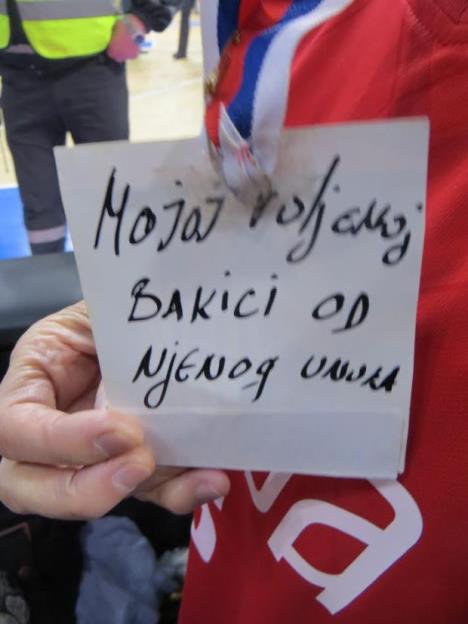 Mojoj voljenoj
BAKICI OD
NjENOg UNUKA